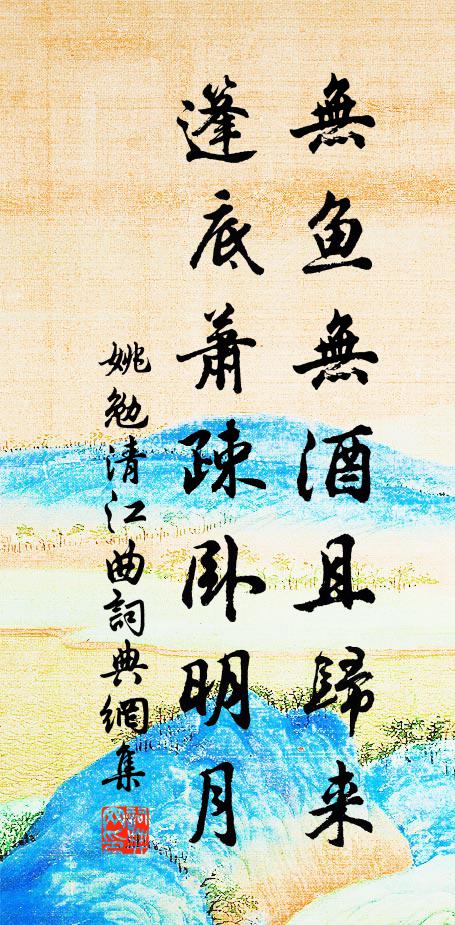 無魚無酒且歸来
篷底蕭疎卧明月
姚勉清江曲詞典網集